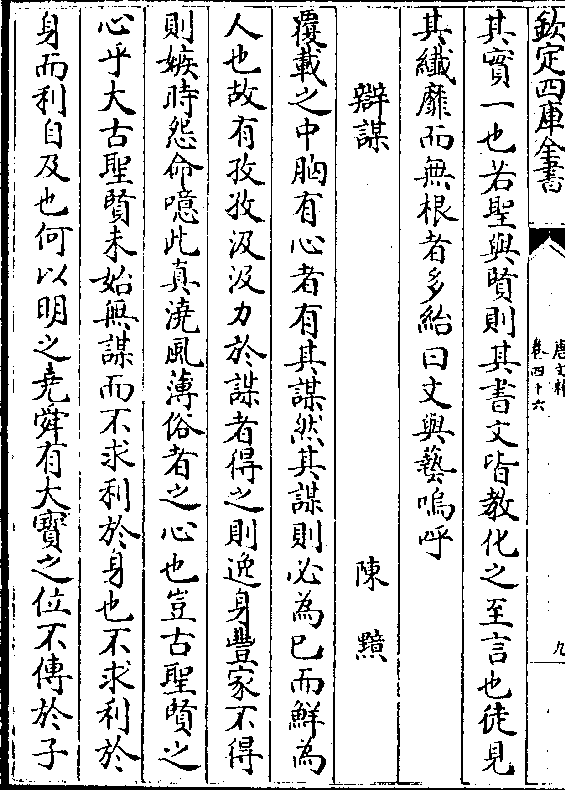 欽定四庫全書
唐文粹
卷四十六
九
其實一也若聖與賢則其書文皆教化之至言也徒見
其纖靡而無根者多紿曰文與藝嗚呼
辯謀 陳黯
覆載之中胸有心者有其謀然其謀則必為己而鮮為
人也故有孜孜汲汲力於謀者得之則逸身豐家不得
則嫉時怨命噫此真澆風薄俗者之心也豈古聖賢之
心乎大古聖賢未始無謀而不求利於身也不求利於
身而利自及也何以明之堯舜有大寶之位不傳於子